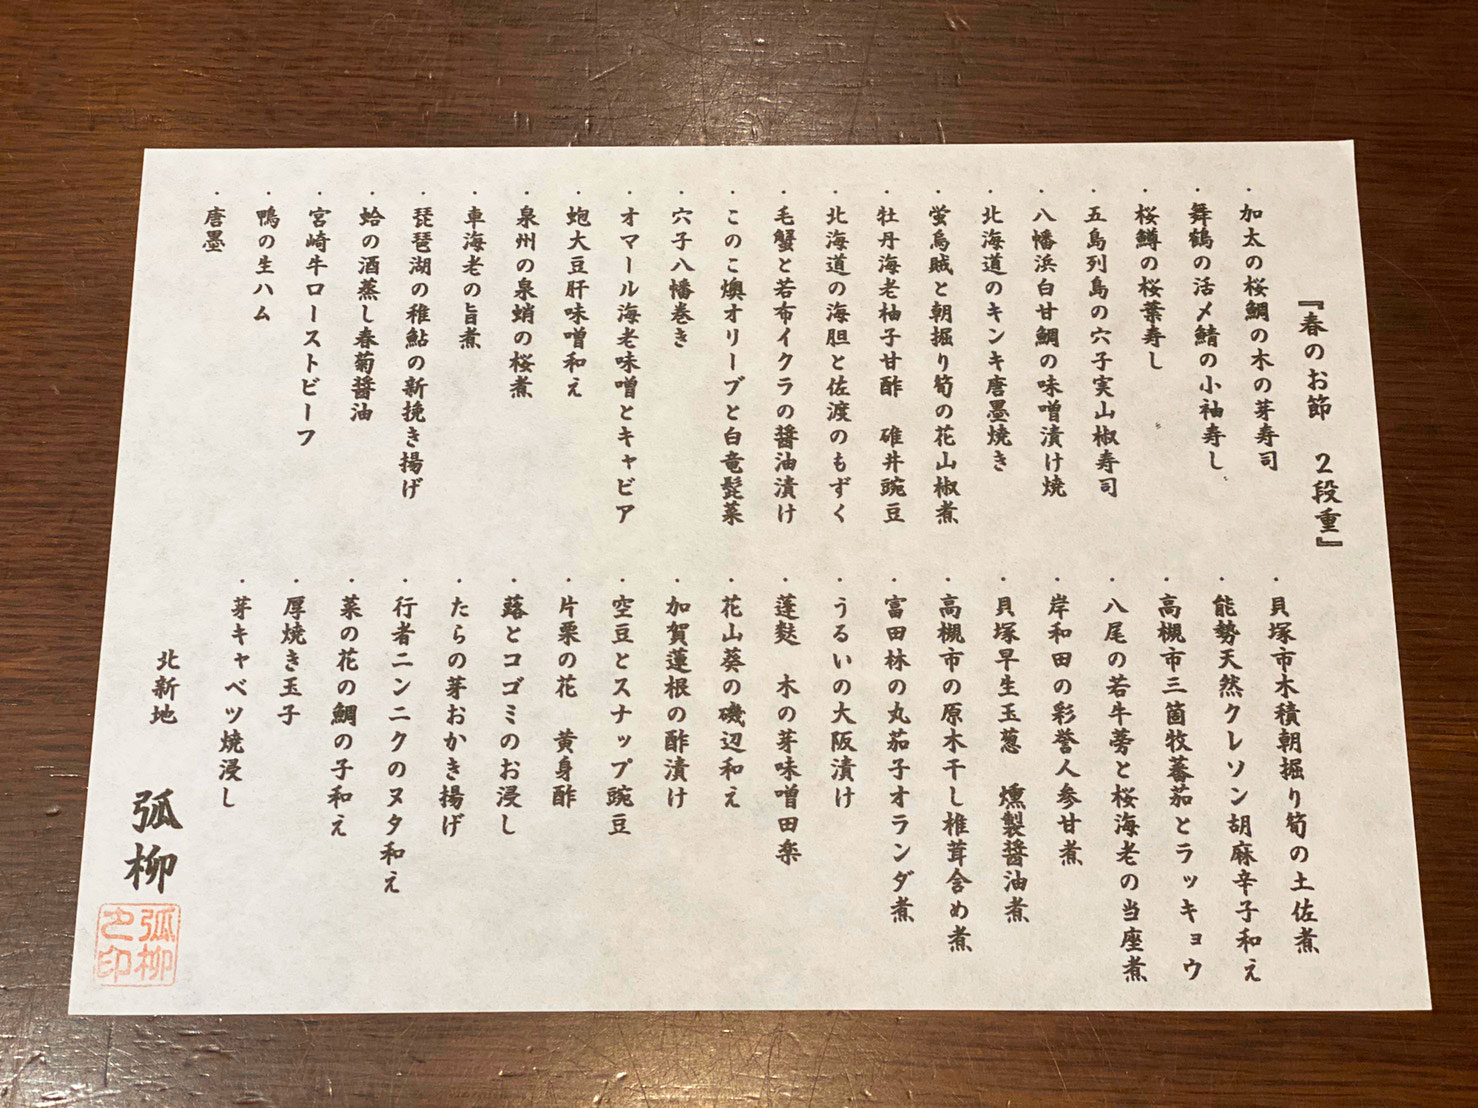 『春のお節　2段重』
・加太の桜鯛の木の芽寿司
・舞鶴の活〆鯖の小袖寿し
・桜鱒の桜葉寿し
・五島列島の穴子実山椒寿司
・八幡浜白甘鯛の味噌漬け焼
・北海道のキンキ唐墨焼き
・蛍烏賊と朝掘り筍の花山椒煮
・牡丹海老柚子甘酢　碓井豌豆
・北海道の海胆と佐渡のもずく
・毛蟹と若布イクラの醤油漬け
・このこ燠オリーブと白竜髭菜
・穴子八幡巻き
・オマール海老味噌とキャビア
・鮑大豆肝味噌和え
・泉州の泉蛸の桜煮
・車海老の旨煮
・琵琶湖の稚鮎の新挽き揚げ
・蛤の酒蒸し春菊醤油
・宮崎牛ローストビーフ
・鴨の生ハム
・唐墨
・貝塚市木積朝掘り筍の土佐煮
・能勢天然クレソン胡麻辛子和え
・高槻市三箇牧蕃茄とラッキョウ
・八尾の若牛蒡と桜海老の当座煮
・岸和田の彩誉人参甘煮
・貝塚早生玉葱　燻製醤油煮
・高槻市の原木干し椎茸含め煮
・富田林の丸茄子オランダ煮
・うるいの大阪漬け
・蓬麸　木の芽味噌田楽
・花山葵の磯辺和え
・加賀蓮根の酢漬け
・空豆とスナップ豌豆
・片栗の花　黄身酢
・蕗とコゴミのお浸し
・たらの芽おかき揚げ
・行者ニンニクのヌタ和え
・菜の花の鯛の子和え
・厚焼き玉子
・芽キャベツ焼浸し
北新地　弧柳
弧柳之印